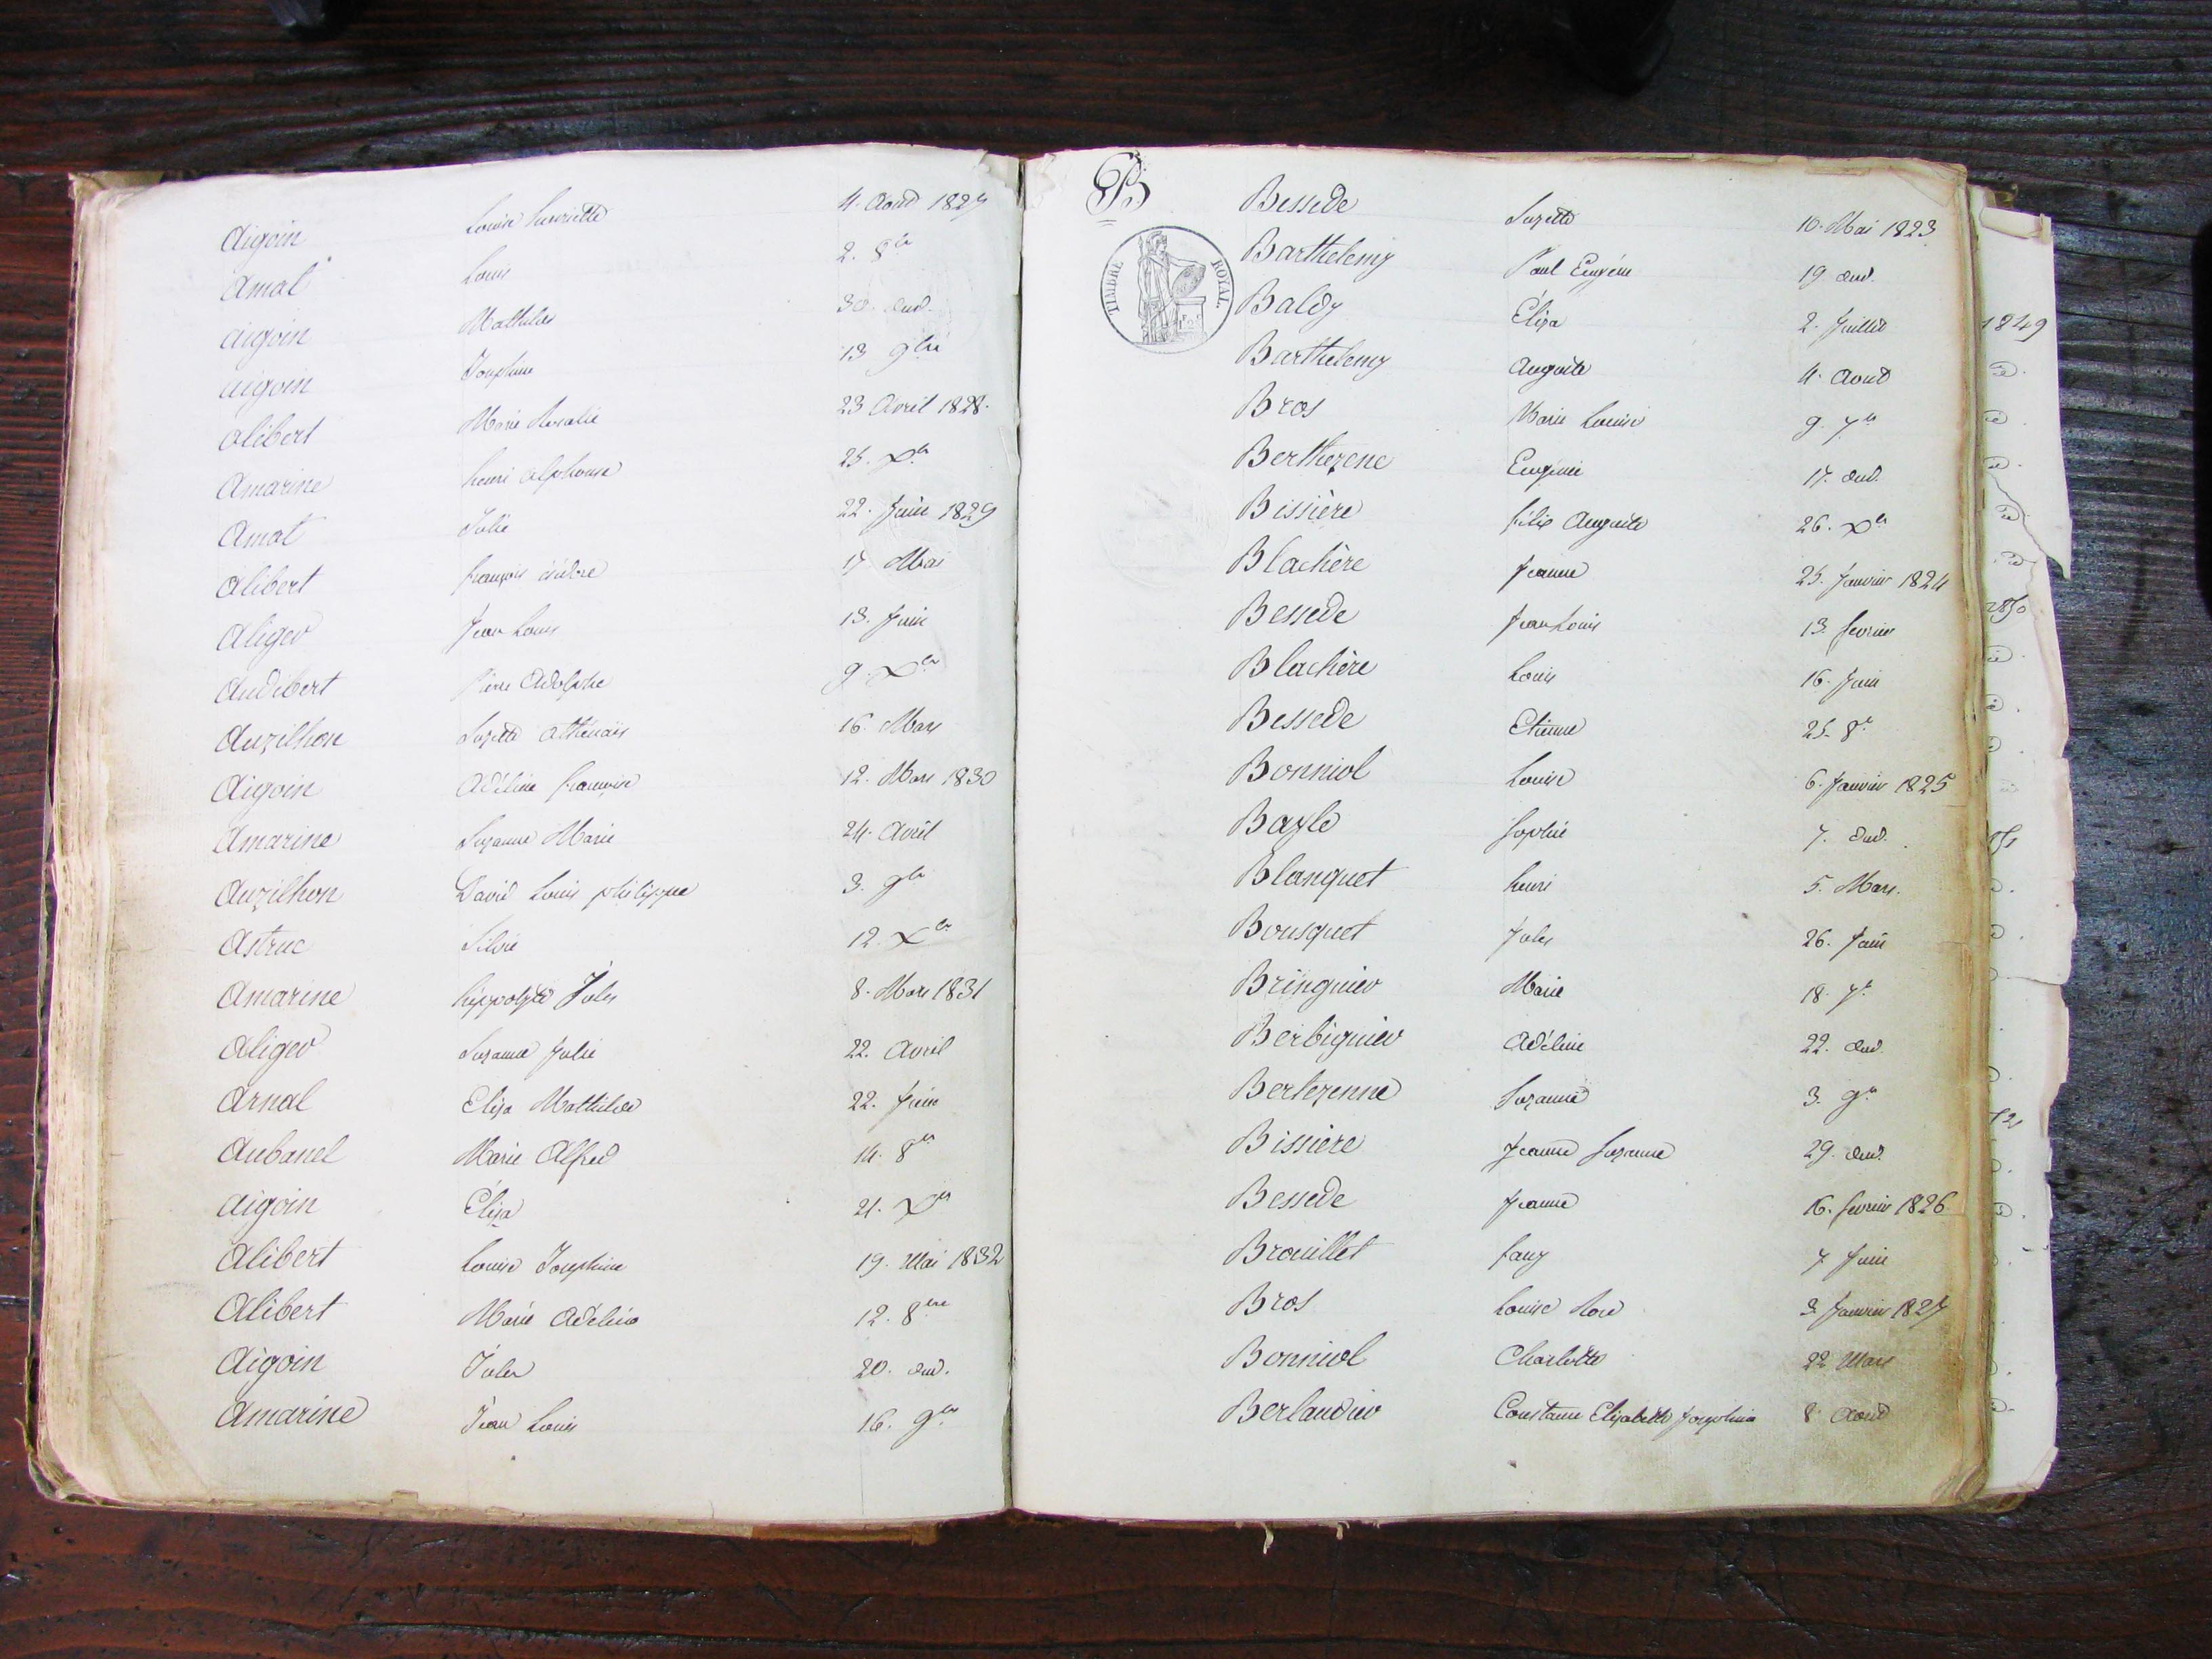 Aigoin Louise henriette 4. Aout 1827
Amal Louis 2. 8bre
Aigoin Mathilde 30. dud.
Aigoin Josephine 13 9bre
Alibert Marie Rosalie 23 Avril 1828.
Amarine henri Alphonse 25. Xbre
Amat Julie 22. Juin 1829
Alibert françois isidore 17 Mai
Aliger Jean Louis 13. Juin
Audibert Pierre Adolphe 9. Xbre
Auzilhon Suzette Athénaïs 16. Mars
Aigoin Adéline françoise 12. Mars 1830
Amarine Suzanne Marie 24. Avril
Auzilhon David Louis philippe 3. 9bre
Astruc Silvie 12. Xbre
Amarine hippolyte Jules 8. Mars 1831
Aliger Suzanne Julie 22. Avril
Arnal Eliza Mathilde 22. Juin
Aubanel Marie Alfred 14. 8bre
Aigoin Éliza 21. Xbre
Alibert Louise Josephine 19. Mai 1832
Alibert Marie Adéline 12. 8bre
Aigoin Jules 20. dud.
Amarine Jean Louis 16. 9bre
B
TIMBRE ROYAL.
Bessede Suzette 10. Mai 1823
Barthelemy Paul Eugéne 19. dud.
Baldy Éliza 2. Juillet
Barthelemy Auguste 4. Aout
Bros Marie Louise 9. 7bre
Berthezene Eugénie 17. dud.
Bissière félix Auguste 26. Xbre
Blachère Jeanne 25. Janvier 1824
Bessede Jean Louis 13. fevrier
Blachère Louis 16. Juin
Bessede Etienne 25. 8e
Bonniol Louise 6. Janvier 1825
Bayle Sophie 7. dud.
Blanquet henri 5. Mars.
Bousquet Jules 26. Juin
Bringuier Marie 18. 7e
Berbiguier Adéline 22. dud.
Bertezenne Suzanne 3. 9e
Bissiere Jeanne Suzanne 29. dud.
Bessede Jeanne 16. fevrier 1826
Brouillet fany 7 Juin
Bros Louise Rose 3. Janvier 1827
Bonniol Charlotte 22 Mars
Berlaudier Constance Elizabeth Josephine 8 Aout
1849